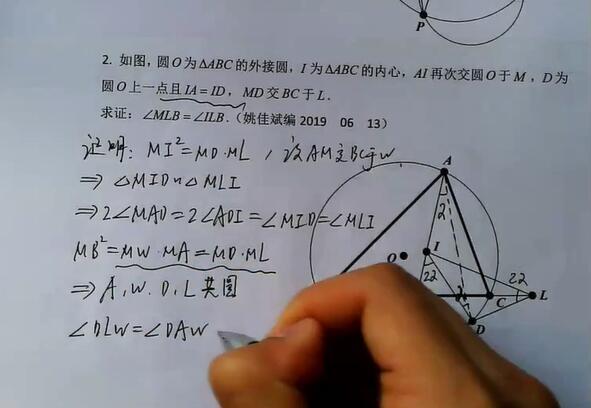 P
2. 如图，圆O为△ABC的外接圆，I为△ABC的内心，AI再次交圆O于M，D为
圆O上一点且IA=ID，MD交BC于L．
求证：∠MLB=∠ILB．(姚佳斌编 2019 06 13)
证明：MI²=MD·ML，设AM交BC于W
⇒ △MID∽△MLI
⇒ 2∠MAD=2∠ADI=∠MID=∠MLI
MB²=MW·MA=MD·ML
⇒ A,W.D,L共圆
∠DLW=∠DAW
A
2
I
O
22
22
C
L
D